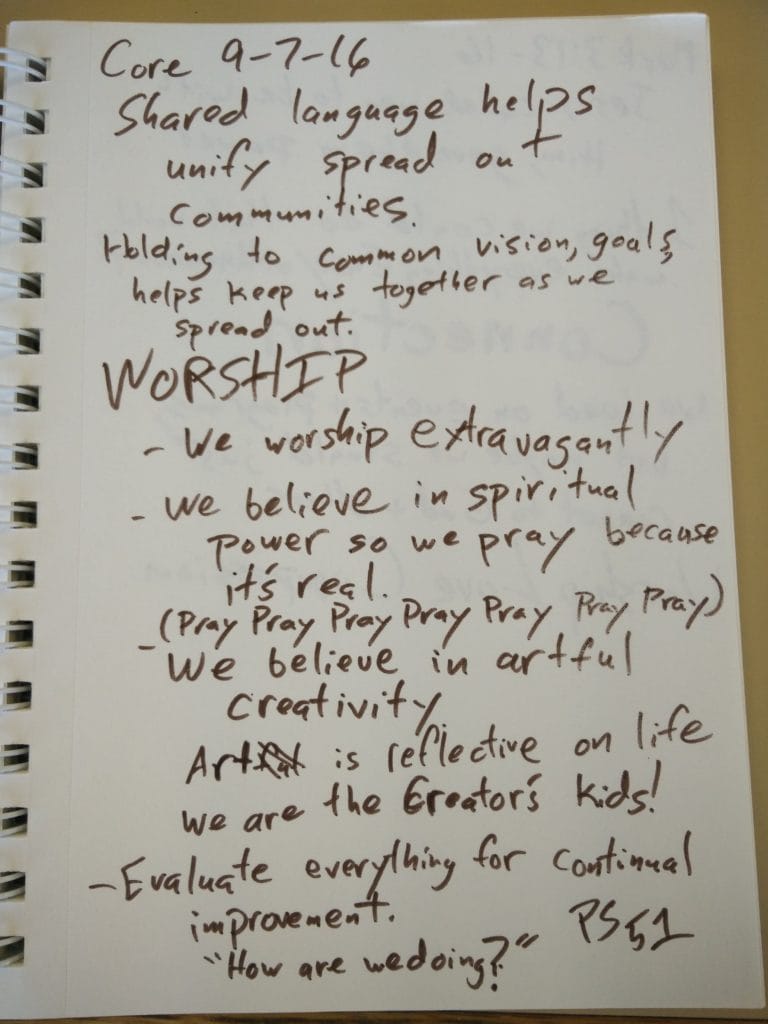 Core 9-7-16
Shared language helps
unify spread out
communities.
Holding to common vision, goals,
helps keep us together as we
spread out.
WORSHIP
- We worship extravagantly
- We believe in spiritual
power so we pray because
it's real.
(Pray Pray Pray Pray Pray Pray Pray)
- We believe in artful
creativity
Art is reflective on life
we are the Creator's kids!
- Evaluate everything for continual
improvement.
"How are we doing?" PS 51